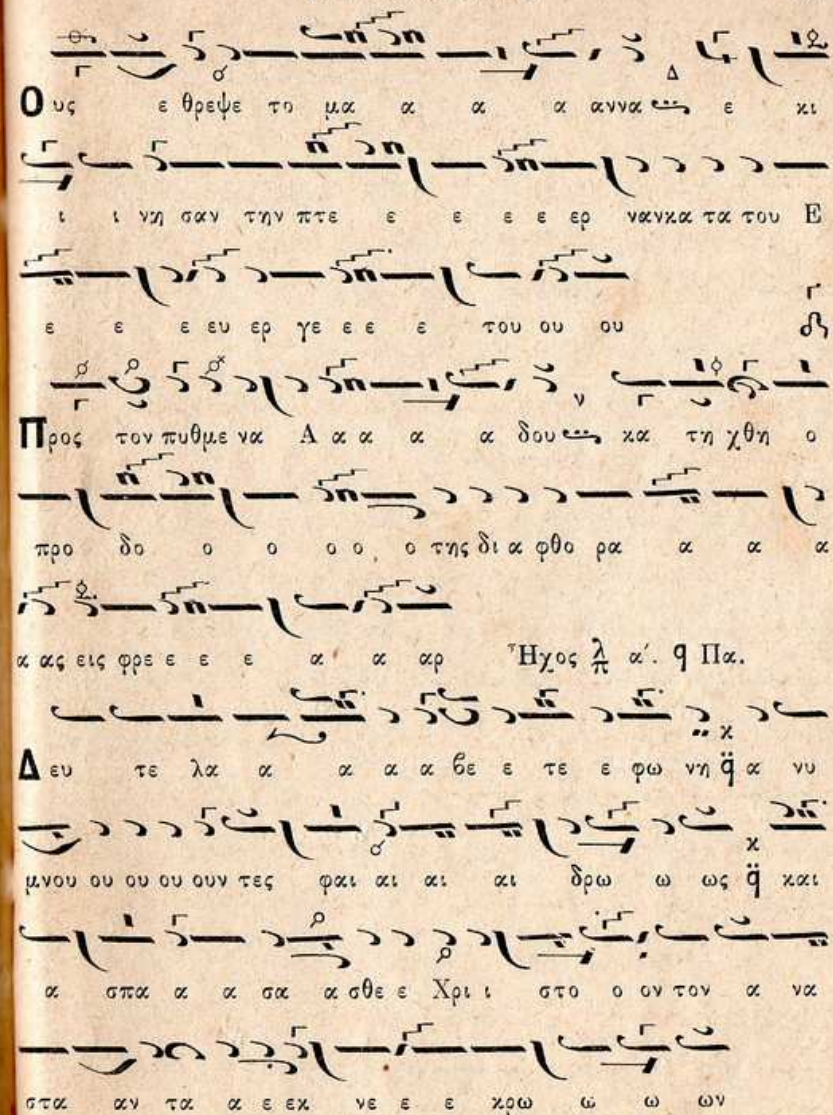 Ους ε θρεψε το μα α α α αννα ε κι
ι ι νη σαν την πτε ε ε ε ε ερ νανκα τα του Ε
ε ε ε ευ ερ γε ε ε ε του ου ου
Προς τον πυθμε να Α α α α α δου κα τη χθη ο
προ δο ο ο ο ο ο της δι α φθο ρα α α α
α ας εις φρε ε ε ε α α αρ Ἦχος λ/π α΄. q Πα.
Δευ τε λα α α α α βε ε τε ε φω νη α νυ
μνου ου ου ου ουν τες φαι αι αι αι δρω ω ως και
α σπα α α σα α σθε ε Χρι ι στο ο ον τον α να
στα αν τα α ε εκ νε ε ε κρω ω ω ων